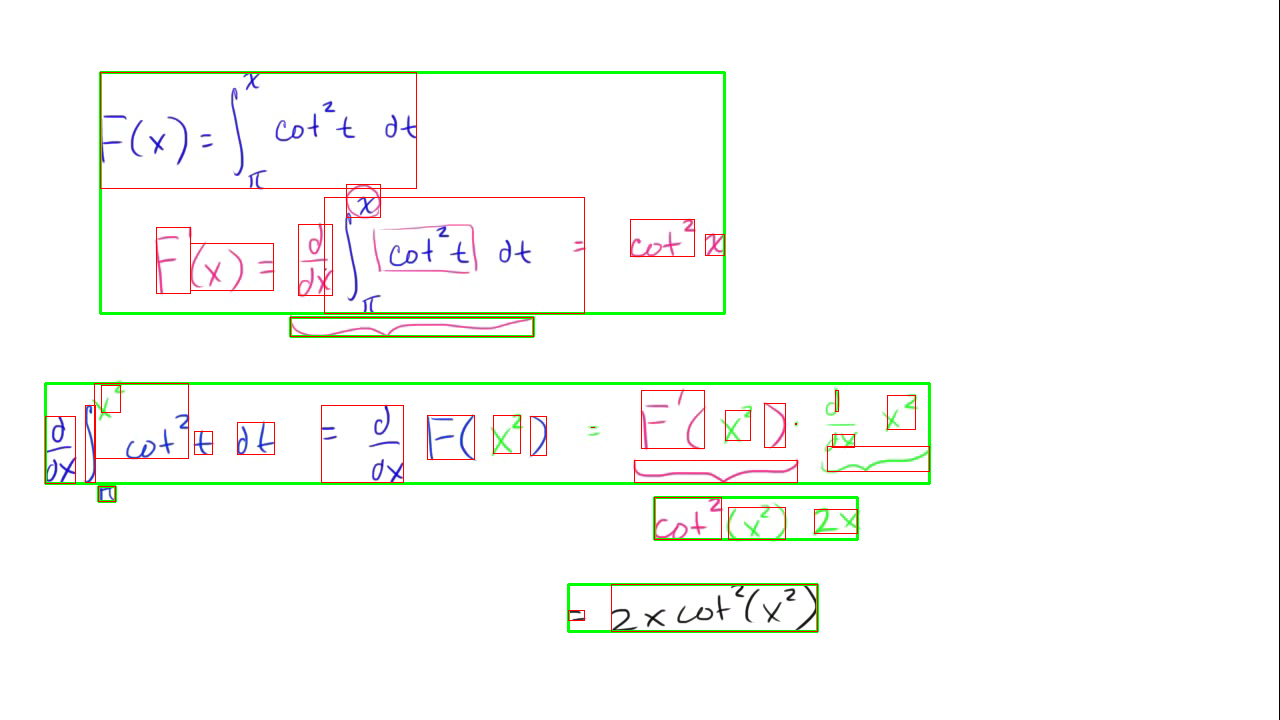 F(x) = ∫_π^x cot² t dt
F(x) = d/dx ∫_π^x cot² t dt = cot² x
d/dx ∫_π^{x²} cot² t dt = d/dx F(x²) = F'(x²) · d/dx x²
cot² (x²) 2x
= 2x cot² (x²)